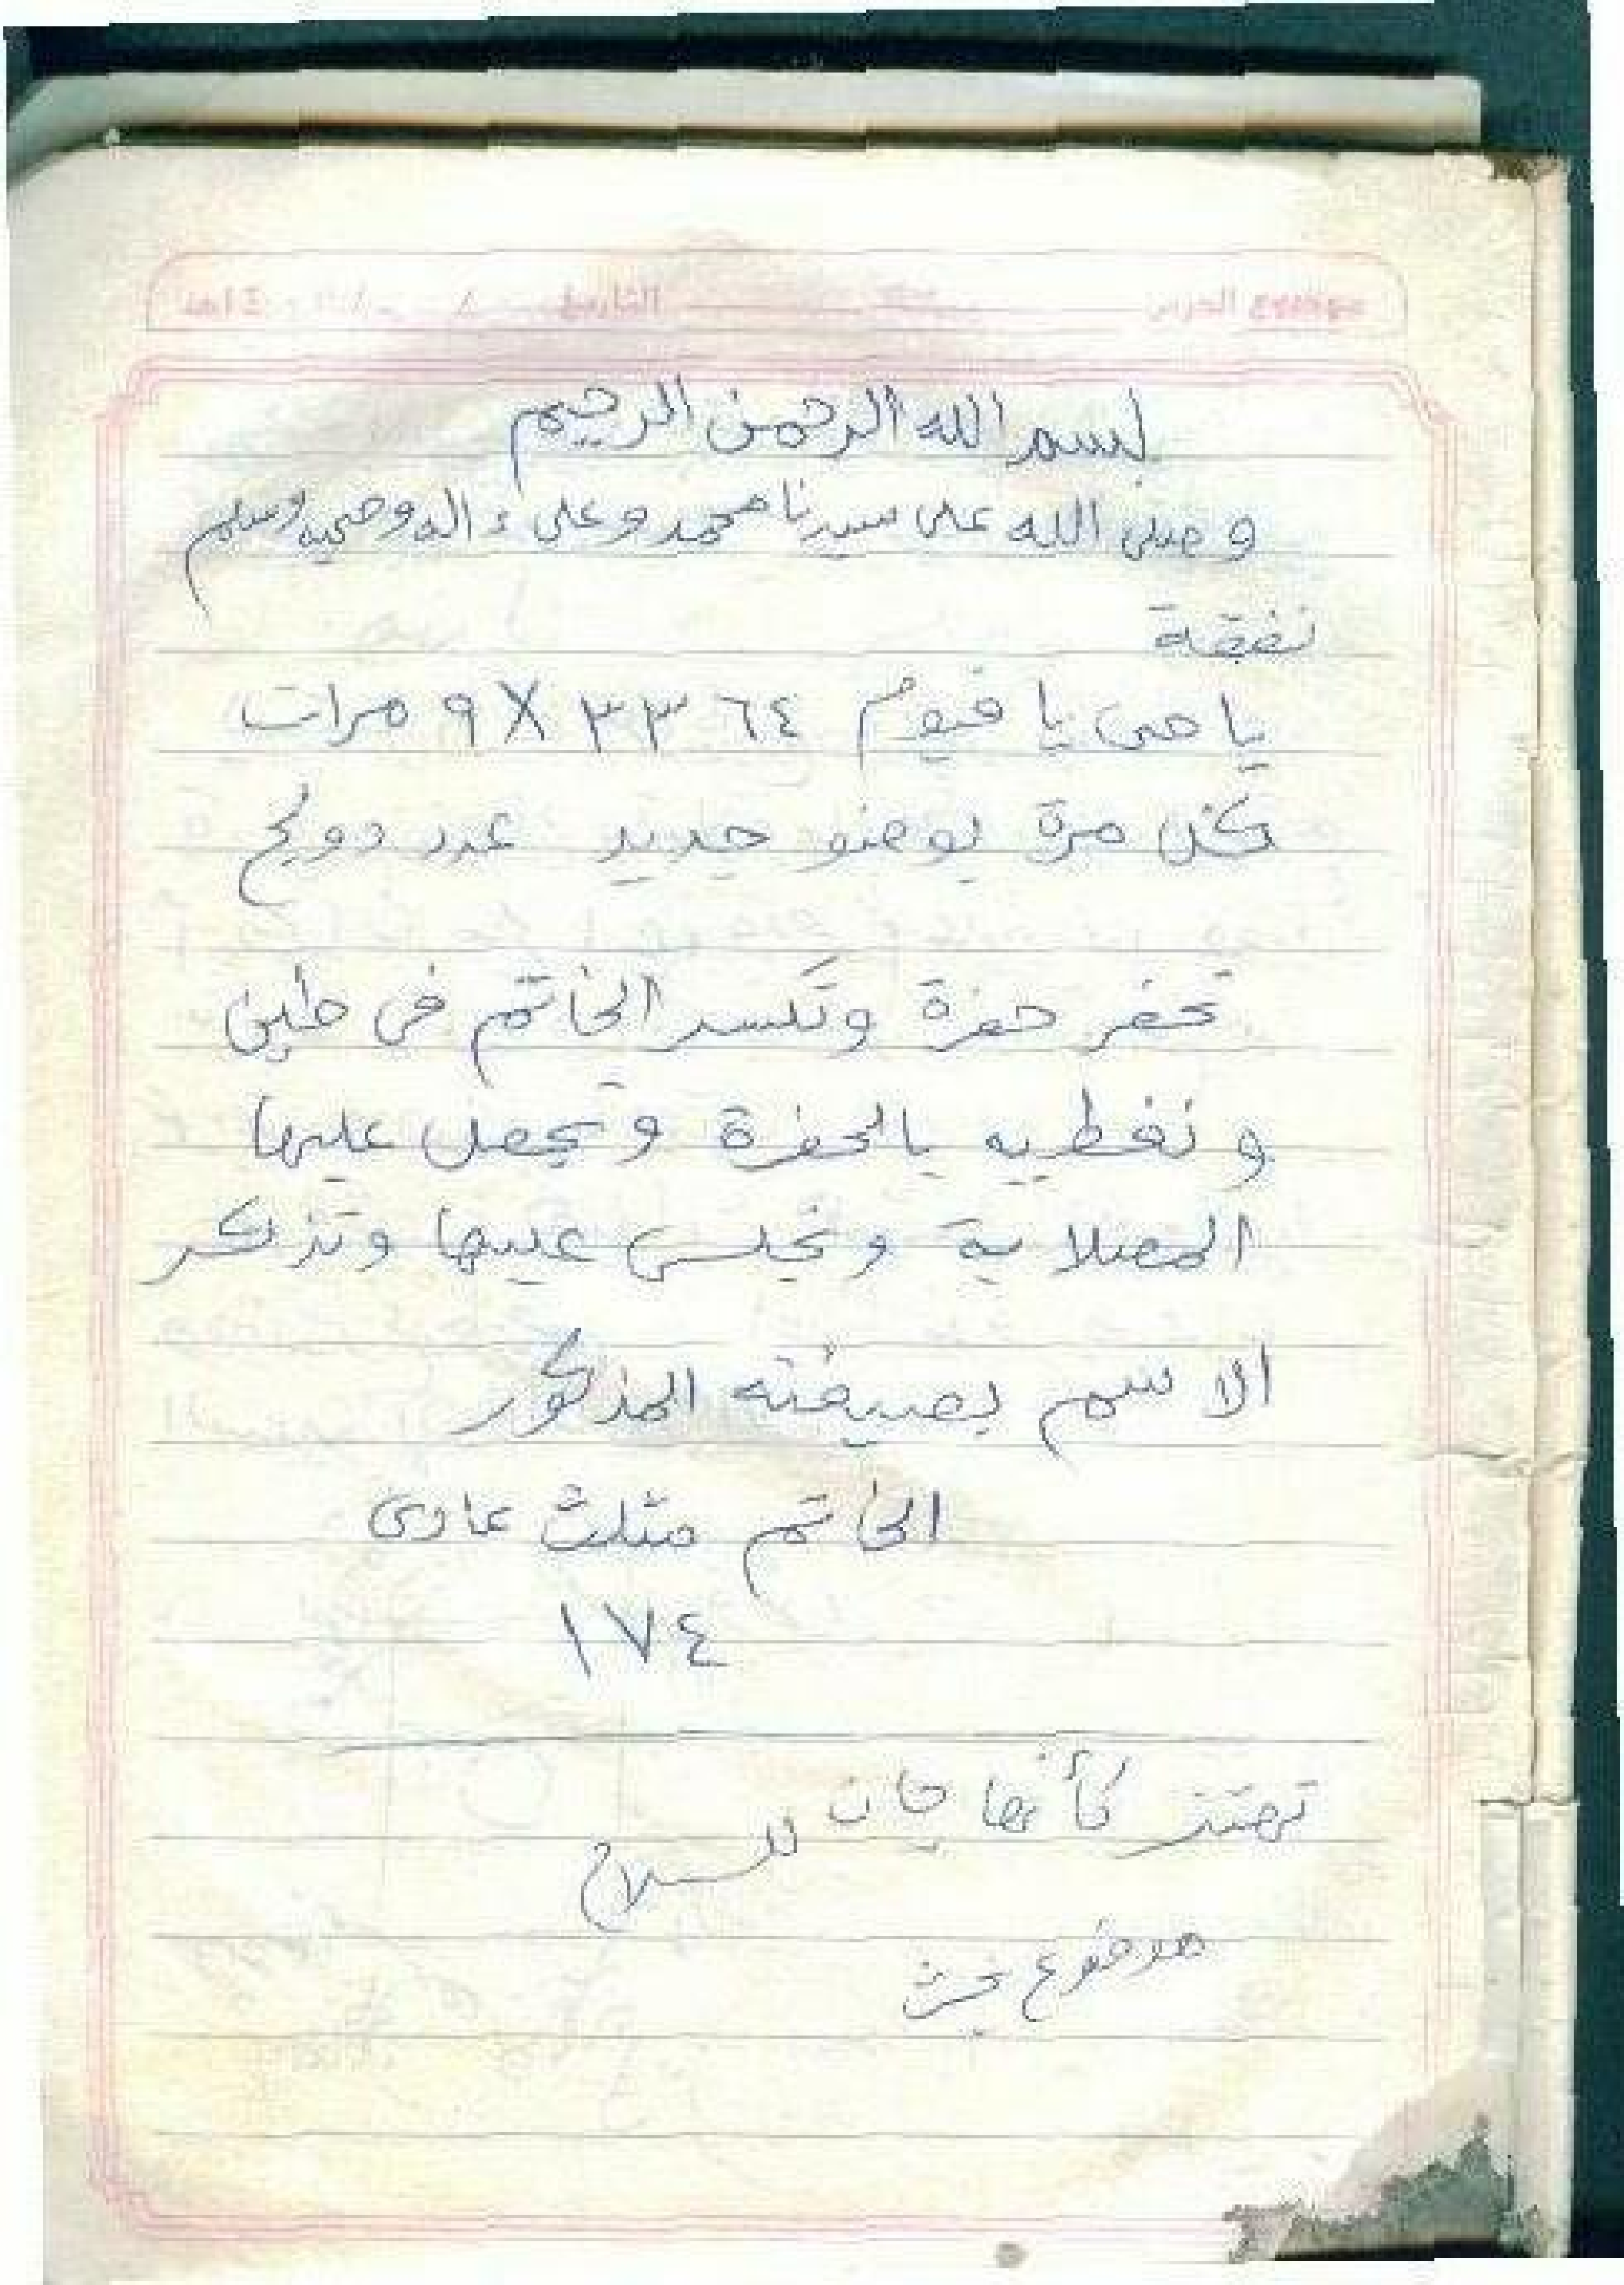 بسم الله الرحمن الرحيم
و صلى الله على سيدنا محمد وعلى ءاله وصحبه وسلم
نفقة
يا حى يا قيوم ٣٣٦٤ X ٩ مرات
كل مرة بوضو جديد عدد
تحفر حفرة وتكسر الخاتم فى طين
و تغطيه بالحفرة وتجعل عليها
المصلاية و تجلس عليها وتذكر
الاسم بصيغته المذكور
الخاتم مثلث عادى
١٧٤
تهتز كأنها جان للسلاح
موضوع بحث